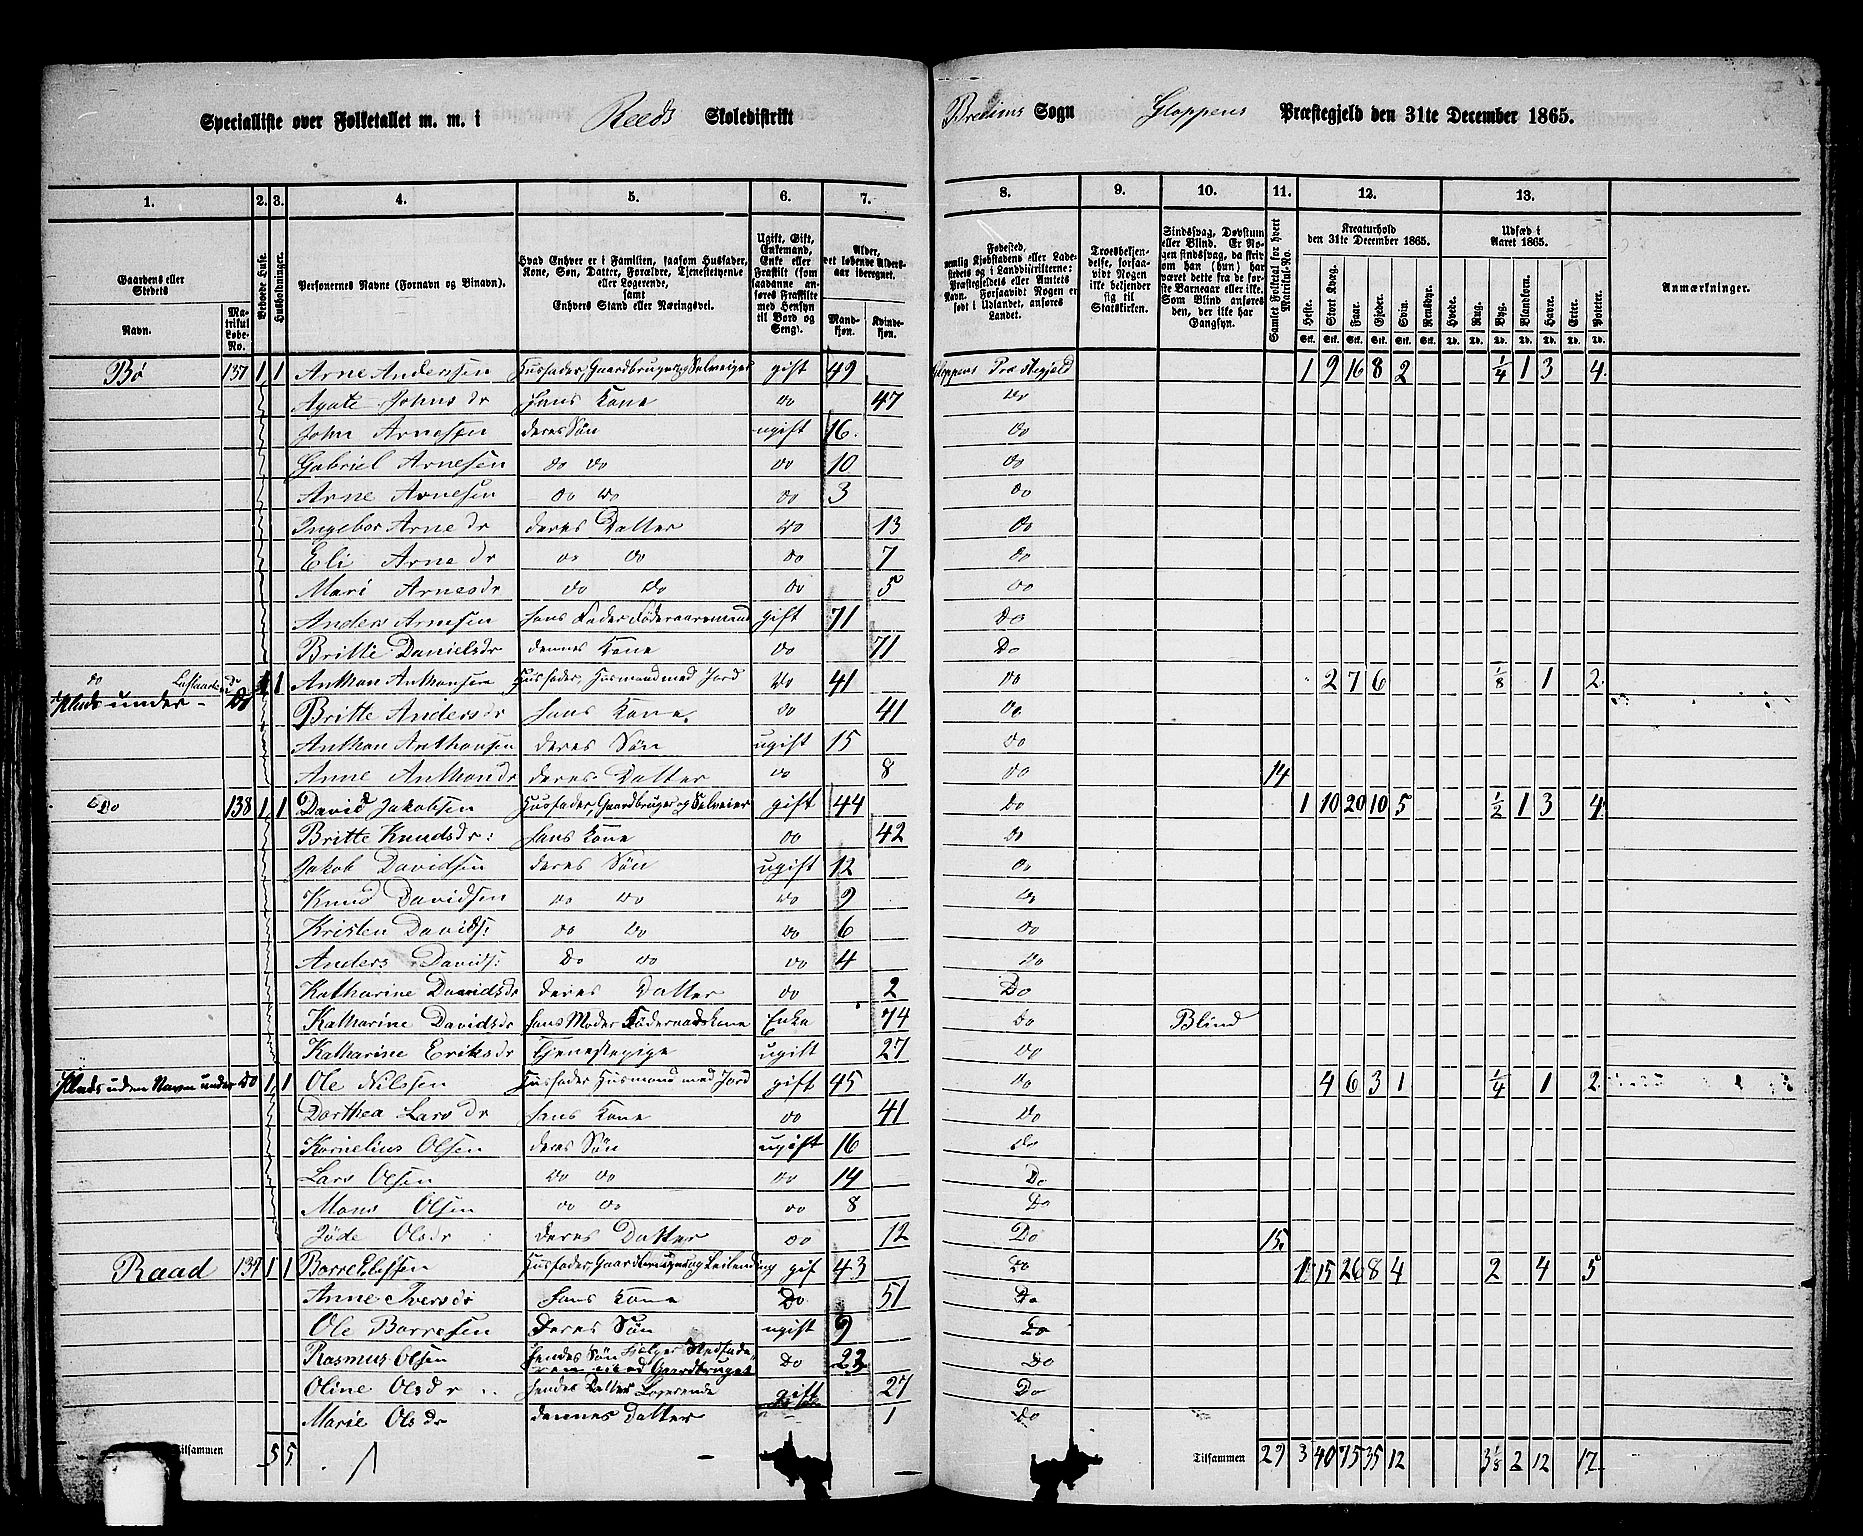 Specialliste over Folketallet m. m. i Reeds Skoledistrikt Breims Sogn Gloppens Præstegjeld den 31te December 1865.
1. 2. 3. 4. 5. 6. 7. 8. 9. 10. 11. 12. 13.
Gaardens eller Stedets
Navn.
Matrikul Løbe-No.
Beboede Huse.
Husholdninger.
Personernes Navne (Fornavn og Binavn).
Hvad Enhver er i Familien, saasom Husfader, Kone, Søn, Datter, Forældre, Tjenestetyende eller Logerende, samt Enhvers Stand eller Næringsvei.
Ugift, Gift, Enkemand, Enke eller Fraskilt (som saadanne anføres Fraskilte med Hensyn til Bord og Seng).
Alder, det løbende Aldersaar iberegnet.
Mandkjøn.
Kvindekjøn.
Fødested, nemlig Kjøbstadens eller Ladestedets og i Landdistrikterne: Præstegjeldets eller Amtets Navn. Forsaavidt Nogen er født i Udlandet, anføres Landet.
Troesbekjendelse, forsaavidt Nogen ikke bekjender sig til Statskirken.
Sindssvag, Døvstum eller Blind. Er Nogen sindssvag, da skriv om han (hun) har været dette fra de første Barneaar eller ikke. Som Blind anføres den, der ikke har Gangsyn.
Samlet Folketal for hvert Matrikul-No.
Kreaturhold den 31te December 1865.
Heste. Stort Kvæg. Faar. Gjeder. Svin. Rensdyr.
Udsæd i Aaret 1865.
Hvede. Rug. Byg. Blandkorn. Havre. Erter. Poteter.
Anmærkninger.
Bø 137 1 1 Arne Andersen Husfader, Gaardbruger og Selveier gift 49 Gloppens Præstegjeld 1 9 16 8 2 1/4 1 3 4
Agate Johnsdr Hans Kone do 47 do
John Arnesen deres Søn ugift 16 do
Gabriel Arnesen do do do 10 do
Arne Arnesen do do do 3 do
Ingebor Arnedr deres Datter do 13 do
Eli Arnedr do do do 7 do
Mari Arnesdr do do do 5 do
Anders Arnesen hans Fader Føderaadsmand gift 71 Do
Britte Danielsdr dennes Kone do 71 Do
do 1 1 Anthon Anthonsen Husfader, Husmand med Jord do 41 do 2 7 6 1/8 1 2
Plads under Do Britte Andersdr hans Kone do 41 do
Anthon Anthonsen deres Søn ugift 15 do
Anne Anthondr deres Datter do 8 do 14
Do 138 1 1 David Jakobsen Husfader, Gaardbruger og Selveier gift 44 Do 1 10 20 10 5 1/2 1 3 4
Britte Knudsdr: hans Kone do 42 do
Jakob Davidsen deres Søn ugift 12 do
Knud Davidsen do do do 9 do
Kristen Davids: do do do 6 do
Anders Davids: Do do do 4 do
Katharine Davidsdr deres Datter do 2 Do
Katharine Davidsdr hans Moder Føderaadskone Enke 74 Do Blind
Katharine Eriksdr Tjenestepige ugift 27 do
Plads uden Navn under do 1 1 Ole Nilsen Husfader Husmand med Jord gift 45 do 4 6 3 1 1/4 1 2
Dorthea Larsdr hans Kone do 41 do
Kornelius Olsen deres Søn ugift 16 do
Lars Olsen do do do 14 Do
Mons Olsen do do do 8 Do
Jøde Olsdr deres Datter do 12 Do 15
Raad 139 1 1 Borre Elissen Husfader, Gaardbruger og Leilending gif 43 Do 1 15 26 8 4 2 4 5
Anne Iversdr hans Kone Do 51 Do
Ole Borresen deres Søn ugift 9 Do
Rasmus Olsen hendes Søn Hjelper
Stedfaderen med Gaardbruget Do 23 Do
Oline Olsdr hendes Datter Logerende gift 27 Do
Marie Olsdr dennes Datter 1 Do
Tilsammen 5 5 Tilsammen 29 3 40 75 35 12 3 1/8 2 12 17